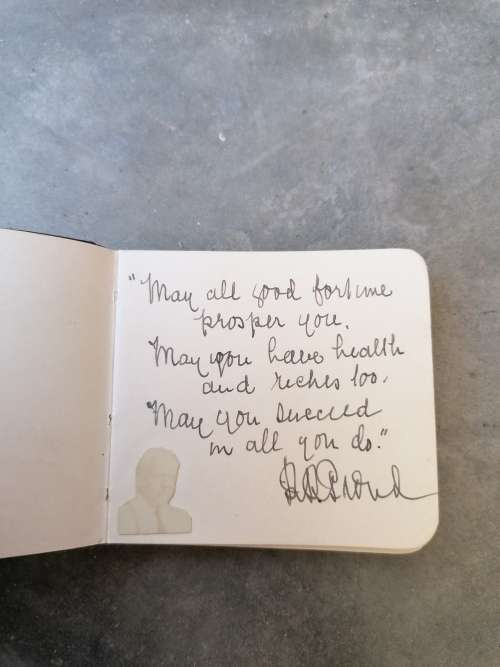 "May all good fortune
prosper you.
May you have health
and riches too.
"May you succeed
in all you do."